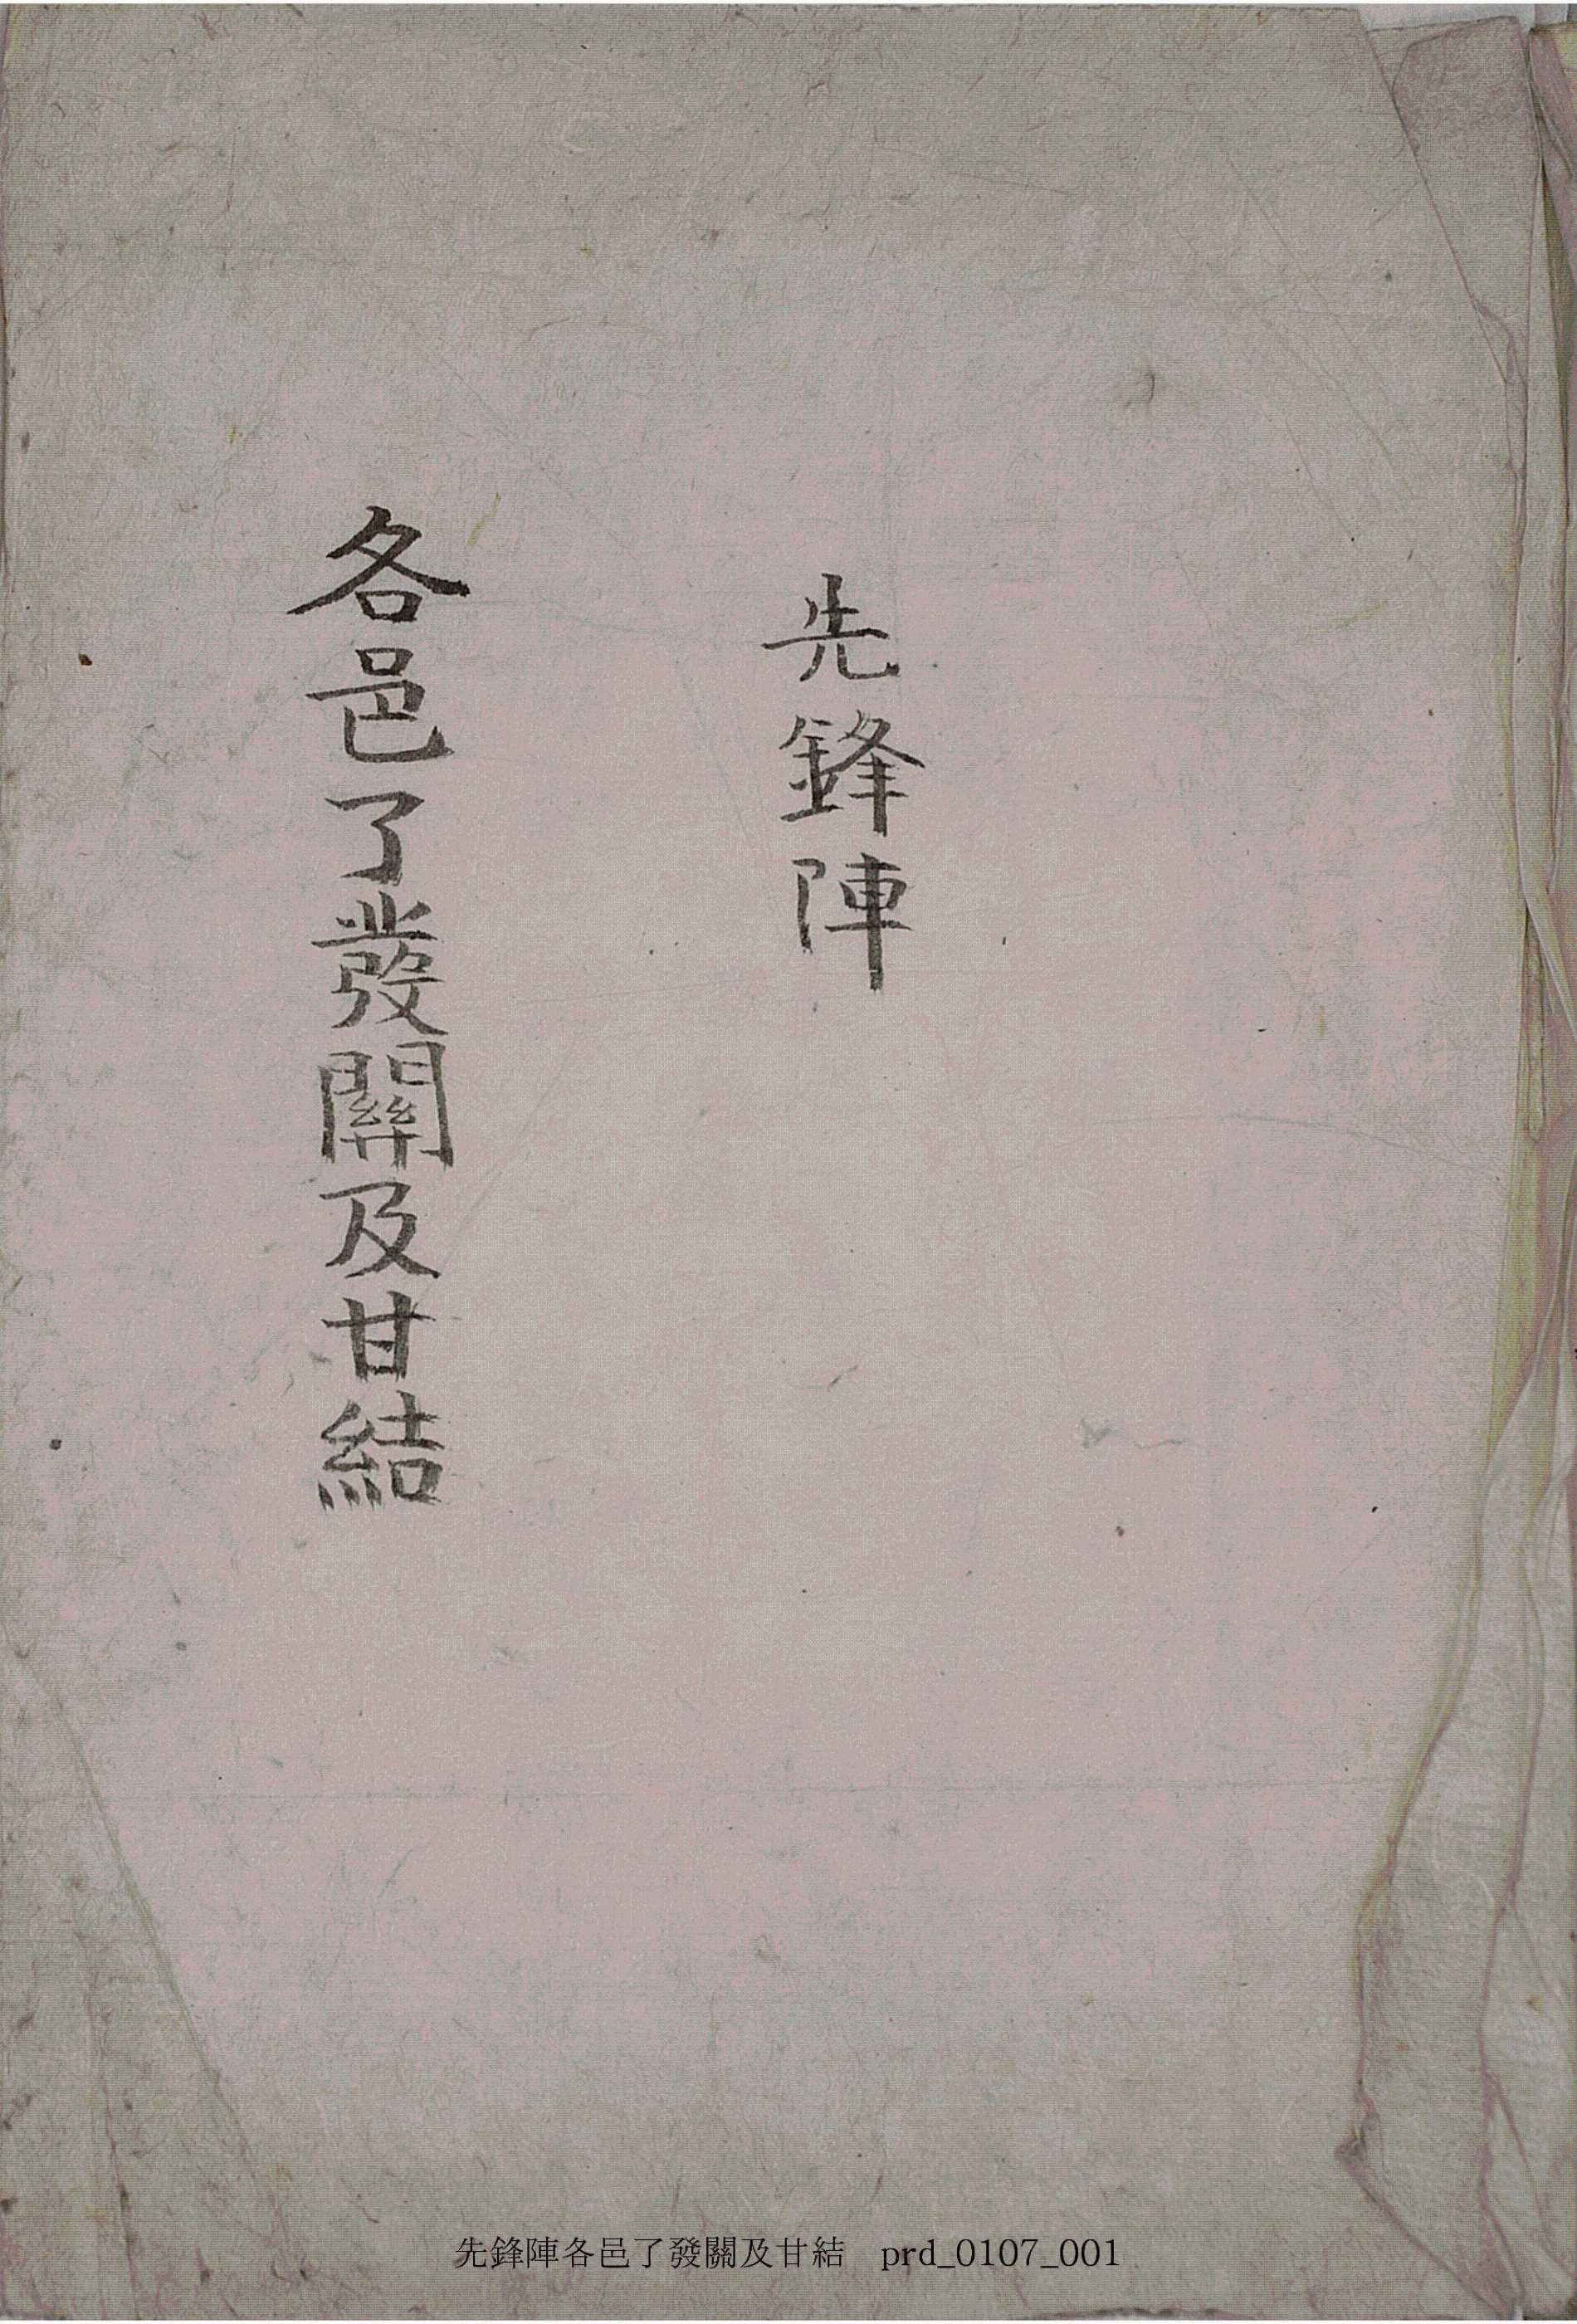 先鋒陣
各邑了發關及甘結
先鋒陣各邑了發關及甘結 prd_0107_001